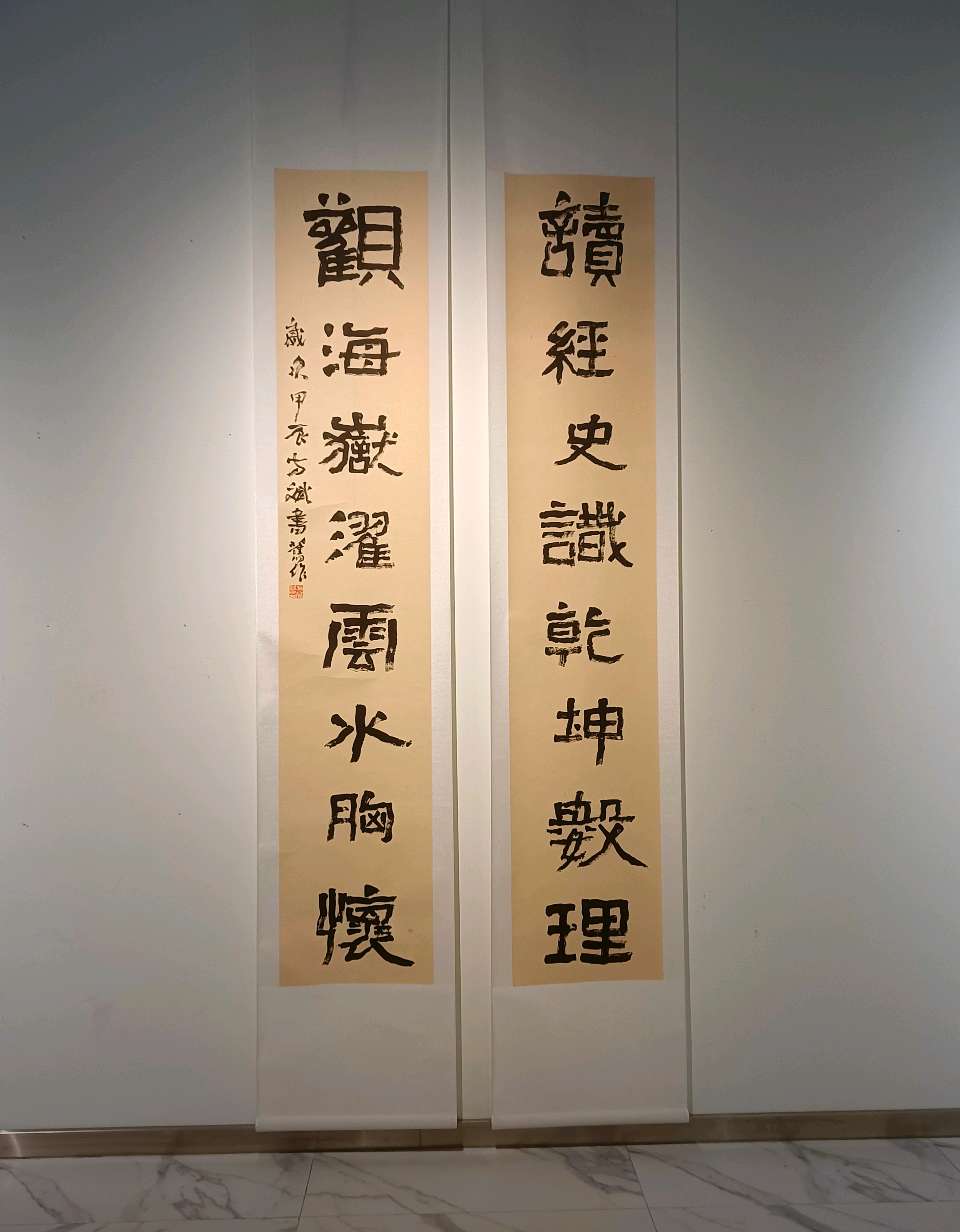 讀經史識乾坤數理
觀海嶽濯雲水胸懷
歲次甲辰高斌書舊作